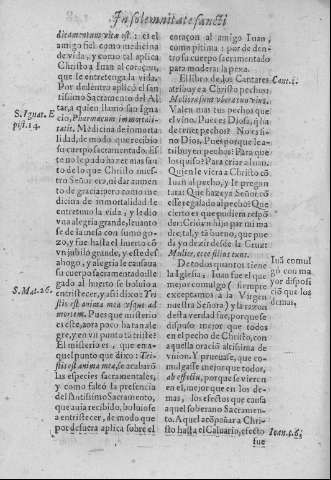 In solemnitate sancti
dicamentum vitæ est: es el
amigo fiel como medicina
de vida, y como tal aplica
Christo a Iuan al coraçon,
que se entretenga la vida.
Por de dentro aplicò el san
tissimo Sacramento del Al
tar, a quien llamò san Igna
S. Ignat. E
pist. 14.
cio, Pharmacum immortali-
tatis. Medicina de inmorta
lidad, de modo que recibio
su cuerpo sacramentado. Es
te no le pudo hazer mas san
to de lo que Christo nues-
tro Señor era, ni dar aumen
to de gracia: pero como me
dicina de inmortalidad le
entretuvo la vida, y le dio
vna alegria grande, leuanto
se de la mesa con sumo go-
zo, y fue hasta el huerto cõ
vn jubilo grande, y este des
ahogo, y alegria le causaua
su cuerpo sacramentado: lle
gado al huerto se boluio a
S. Mat. 26.
entristecer, y assi dixo: Tris
tis est anima mea vsque ad
mortem. Pues que misterio
es este, aora poco ha tan ale
gre, y en vn punto tã triste?
El misterio es, que en a-
quel punto que dixo: Tri-
stis est anima mea, se acabarõ
las especies sacramentales,
y como faltò la presencia
del santissimo Sacramento,
que auia recibido, boluiose
a entristecer, de modo que
por defuera aplica sobre el
coraçon al amigo Iuan,
como pitima: por de den-
tro su cuerpo sacramentado
para moderar la pena.
El libro de los Cantares
Cant. 1.
atribuye a Christo pechos:
Meliora sunt vbera tua vino.
Valen mas tus pechos que
el vino. Pues es Dios, q̃ ha
de tener pechos? No es si-
no Dios. Pues porque le a-
tribuyen pechos? Para que
los quiso? Para criar a Iuan.
Quien le viera a Christo cõ
Iuan al pecho, y le pregun
tara: Que haze ya Señor cõ
esse regalado al pecho? Que
cierto es que pudiera respõ-
der: Crio vn hijo par mi ma
dre, tal, y tã bueno, que pue
da yo dezir desde la Cruz:
Mulier, ecce filius tuus.
De todos quantos tiene
Iuã comul
gò con ma
yor disposi
ciõ que los
demas.
la Iglesia, Iuan fue el que
mejor comulgò (siempre
exceptamos a la Virgen
nuestra Señora) y la razon
desta verdad fue, porque se
dispuso mejor que todos
en el pecho de Christo, con
aquella oraciõ altissima de
vnion. Y prueuase, que co-
mulgasse mejor que todos,
ab effectu, porque se vieron
en el, mejor que en los de-
mas, los efectos que causa
aquel soberano Sacramen-
to. Aquel acõpañar a Chris
to hasta el Caluario, efecto
Ioan. 1. 6.
fue